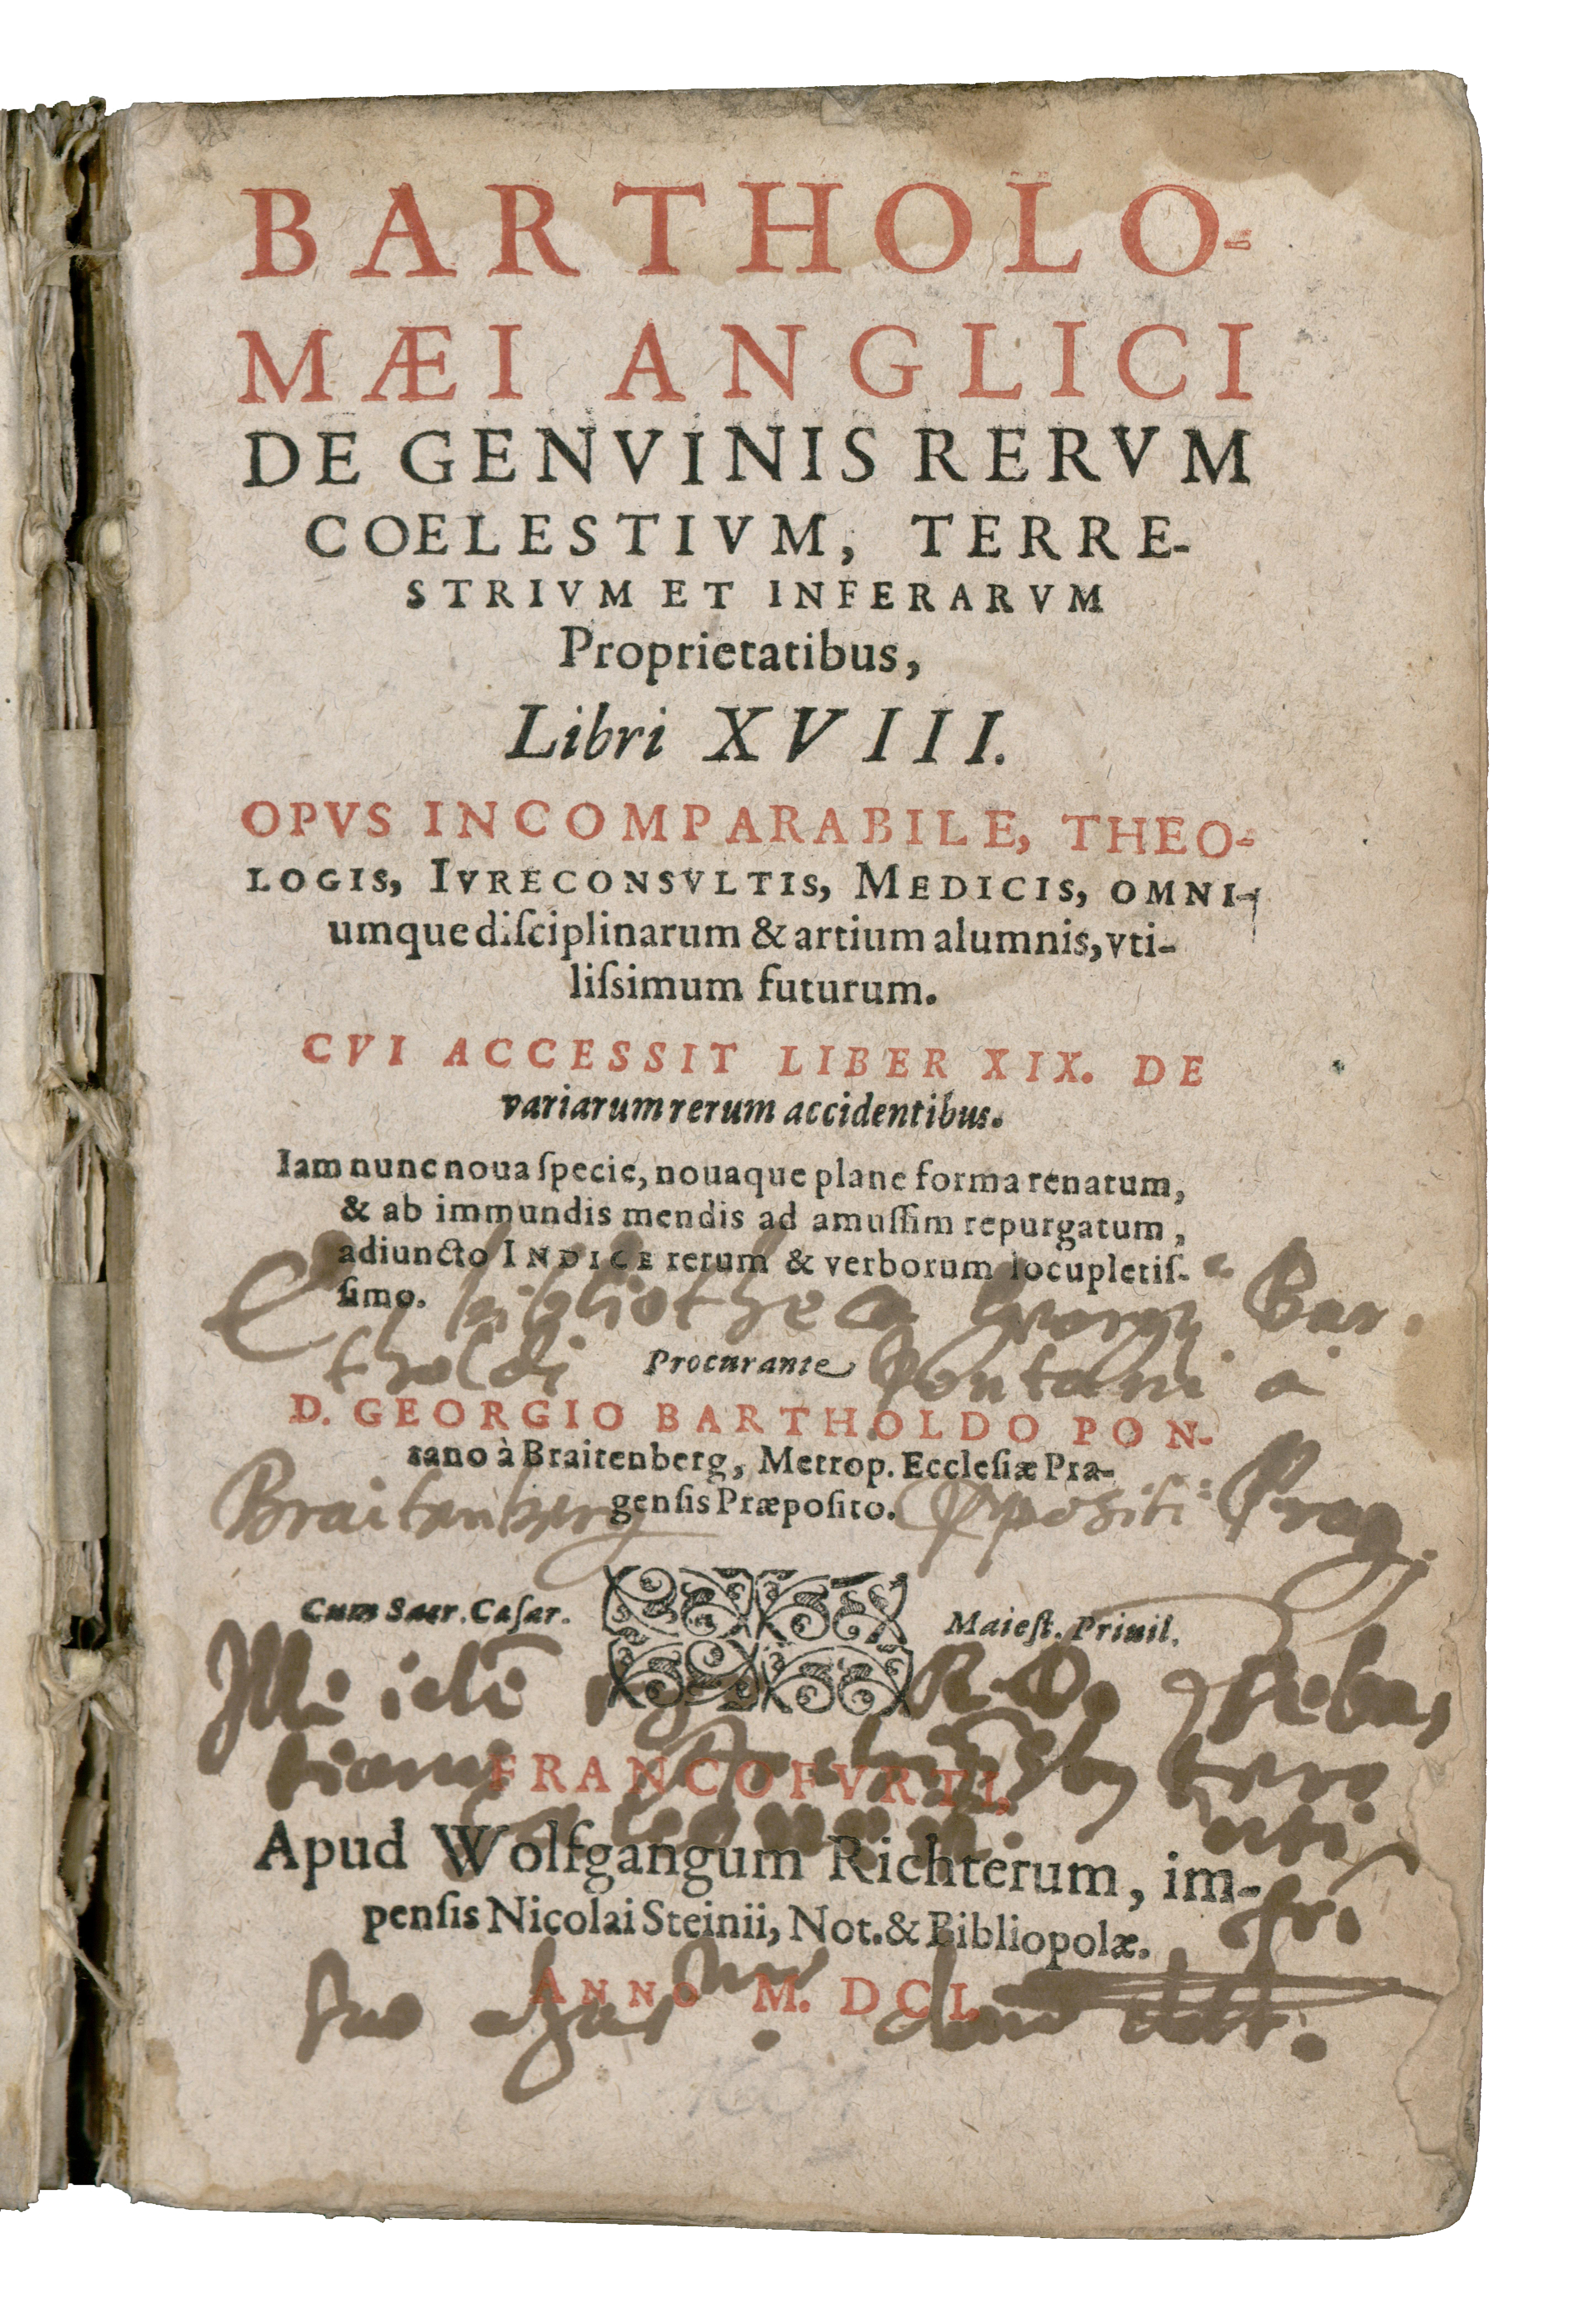 BARTHOLO-
MÆI ANGLICI
DE GENVINIS RERVM
COELESTIVM, TERRE-
STRIVM ET INFERARVM
Proprietatibus,
Libri XVIII.
OPVS INCOMPARABILE, THEO-
LOGIS, IVRECONSVLTIS, MEDICIS, OMNI-
umque diſciplinarum & artium alumnis, vti-
liſsimum futurum.
CVI ACCESSIT LIBER XIX. DE
variarum rerum accidentibus.
Iam nunc noua ſpecie, nouaque plane forma renatum,
& ab immundis mendis ad amuſſim repurgatum,
adiuncto INDICE rerum & verborum locupletiſ-
ſimo.
bibliotheca Bar.
tholdi Pontani à
Procurante
D. GEORGIO BARTHOLDO PON-
tano à Braitenberg, Metrop. Eccleſiæ Pra-
genſis Præpoſito.
Braitenberg Ppositi Prag
Cum Sacr. Caſar. Maieſt. Priuil.
R. D. Seba,
FRANCOFVRTI,
Apud Wolfgangum Richterum, im-
penſis Nicolai Steinii, Not. & Bibliopolæ.
ANNO M. DCI.